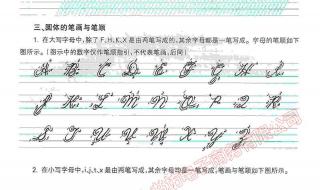 三、圆体的笔画与笔顺
1. 在大写字母中,除了F,H,I,K,X是由两笔写成的,其余字母都是一笔写成。字母的笔顺如下
图所示。(图示中的数字仅作笔顺指引,不代表笔画,后同)
A B C D E F G H I
J K L M N O P Q R
S T U V W X Y Z
2. 在小写字母中,i,j,t,x是由两笔写成,其余字母均是一笔写成,笔画与笔顺如下图所示。